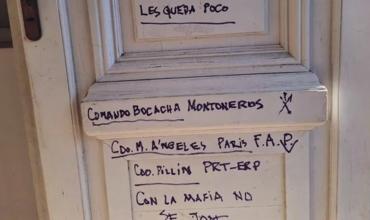 LES QUEDA POCO
COMANDO BOCACHA MONTONEROS
CDO. M. ANGELES PARIS F.A.P.
CDO. PILLÍN PRT-ERP
CON LA MAFIA NO
SE